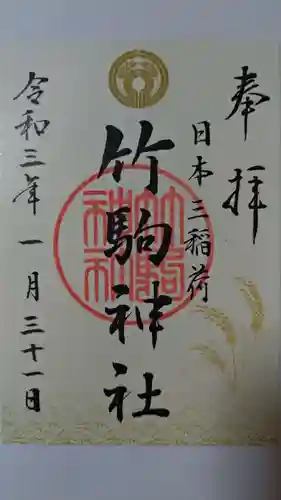 奉拝
日本三稲荷
竹駒神社
竹駒神社
令和三年一月三十一日